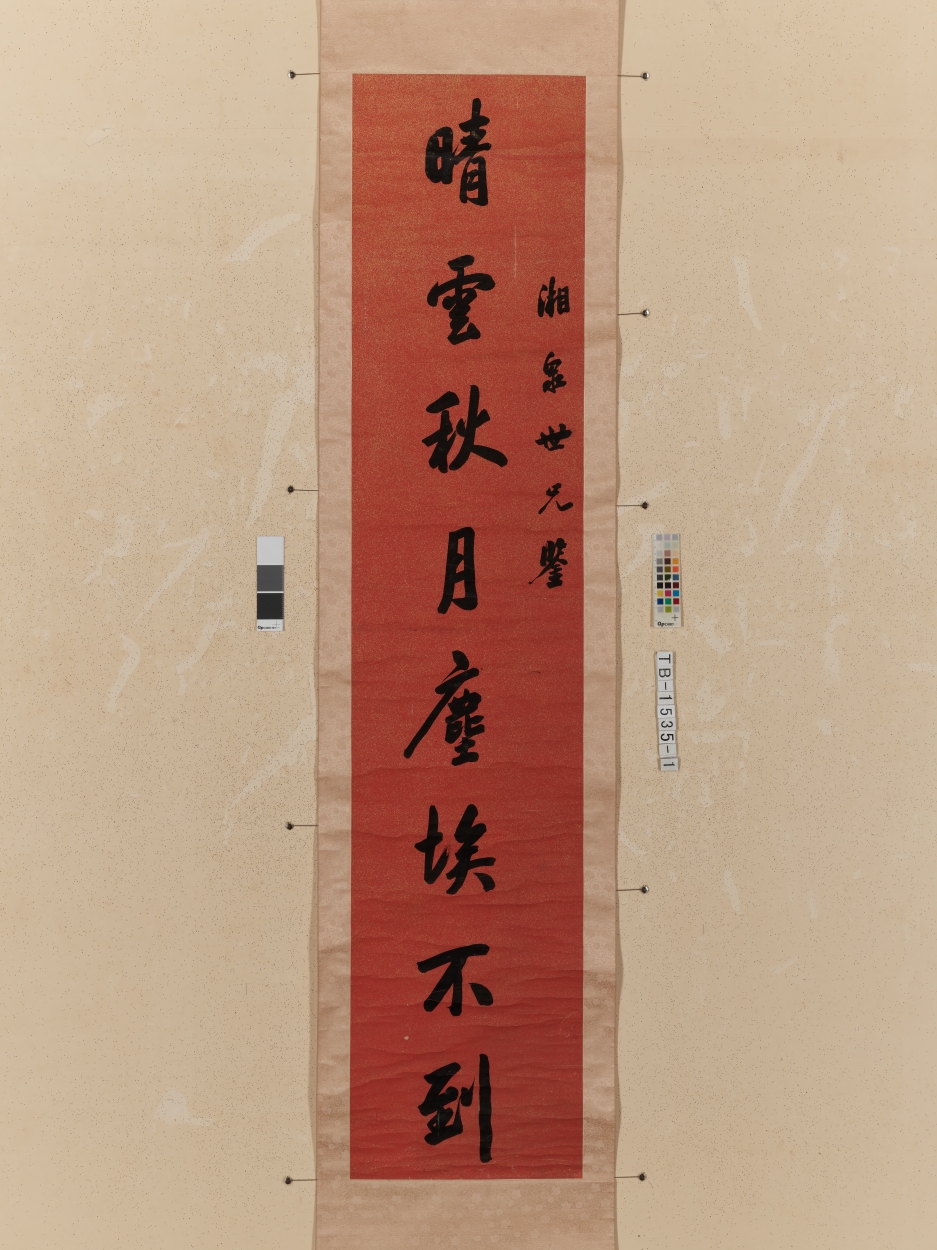 湘泉世兄鑒
晴雲秋月塵埃不到
TB-1535-1